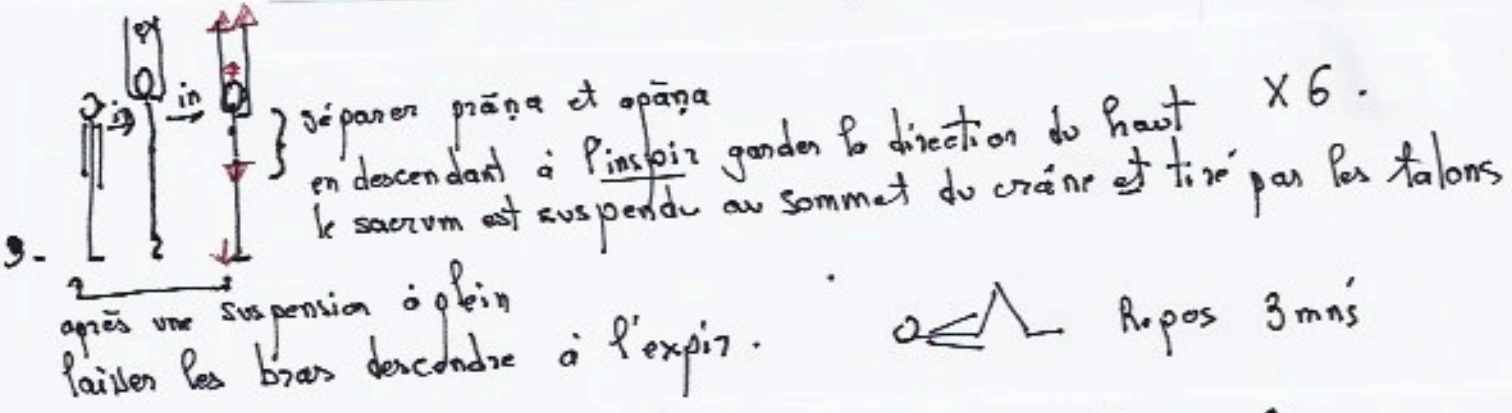 ex
in in
séparer prāṇa et apāna
X 6.
en descendant à l'inspir garder la direction du haut
le sacrum est suspendu au sommet du crâne et tiré par les talons
3-
après une suspension à plein
laisser les bras descendre à l'expir.
Repos 3 mns